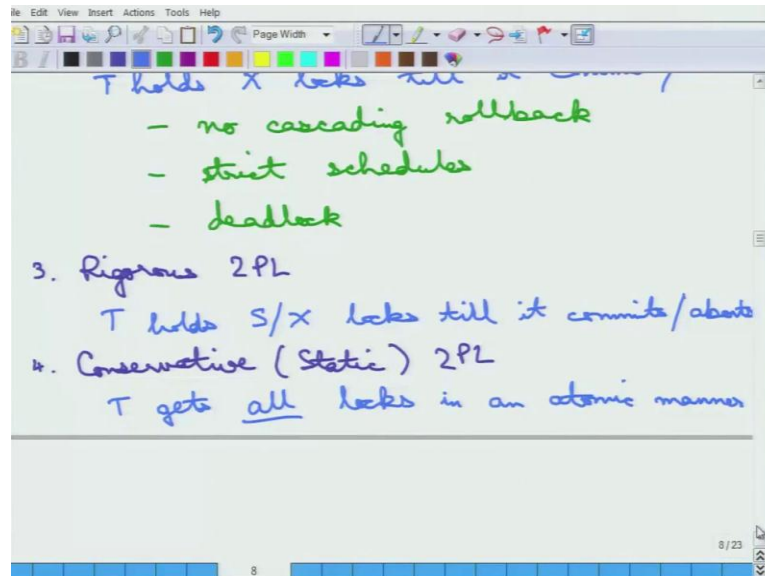 File Edit View Insert Actions Tools Help
Page Width
B I
T holds X locks till it
- no cascading rollback
- strict schedules
- deadlock
3. Rigorous 2PL
T holds S/X locks till it commits/aborts
4. Conservative (Static) 2PL
T gets all locks in an atomic manner
8/23
8